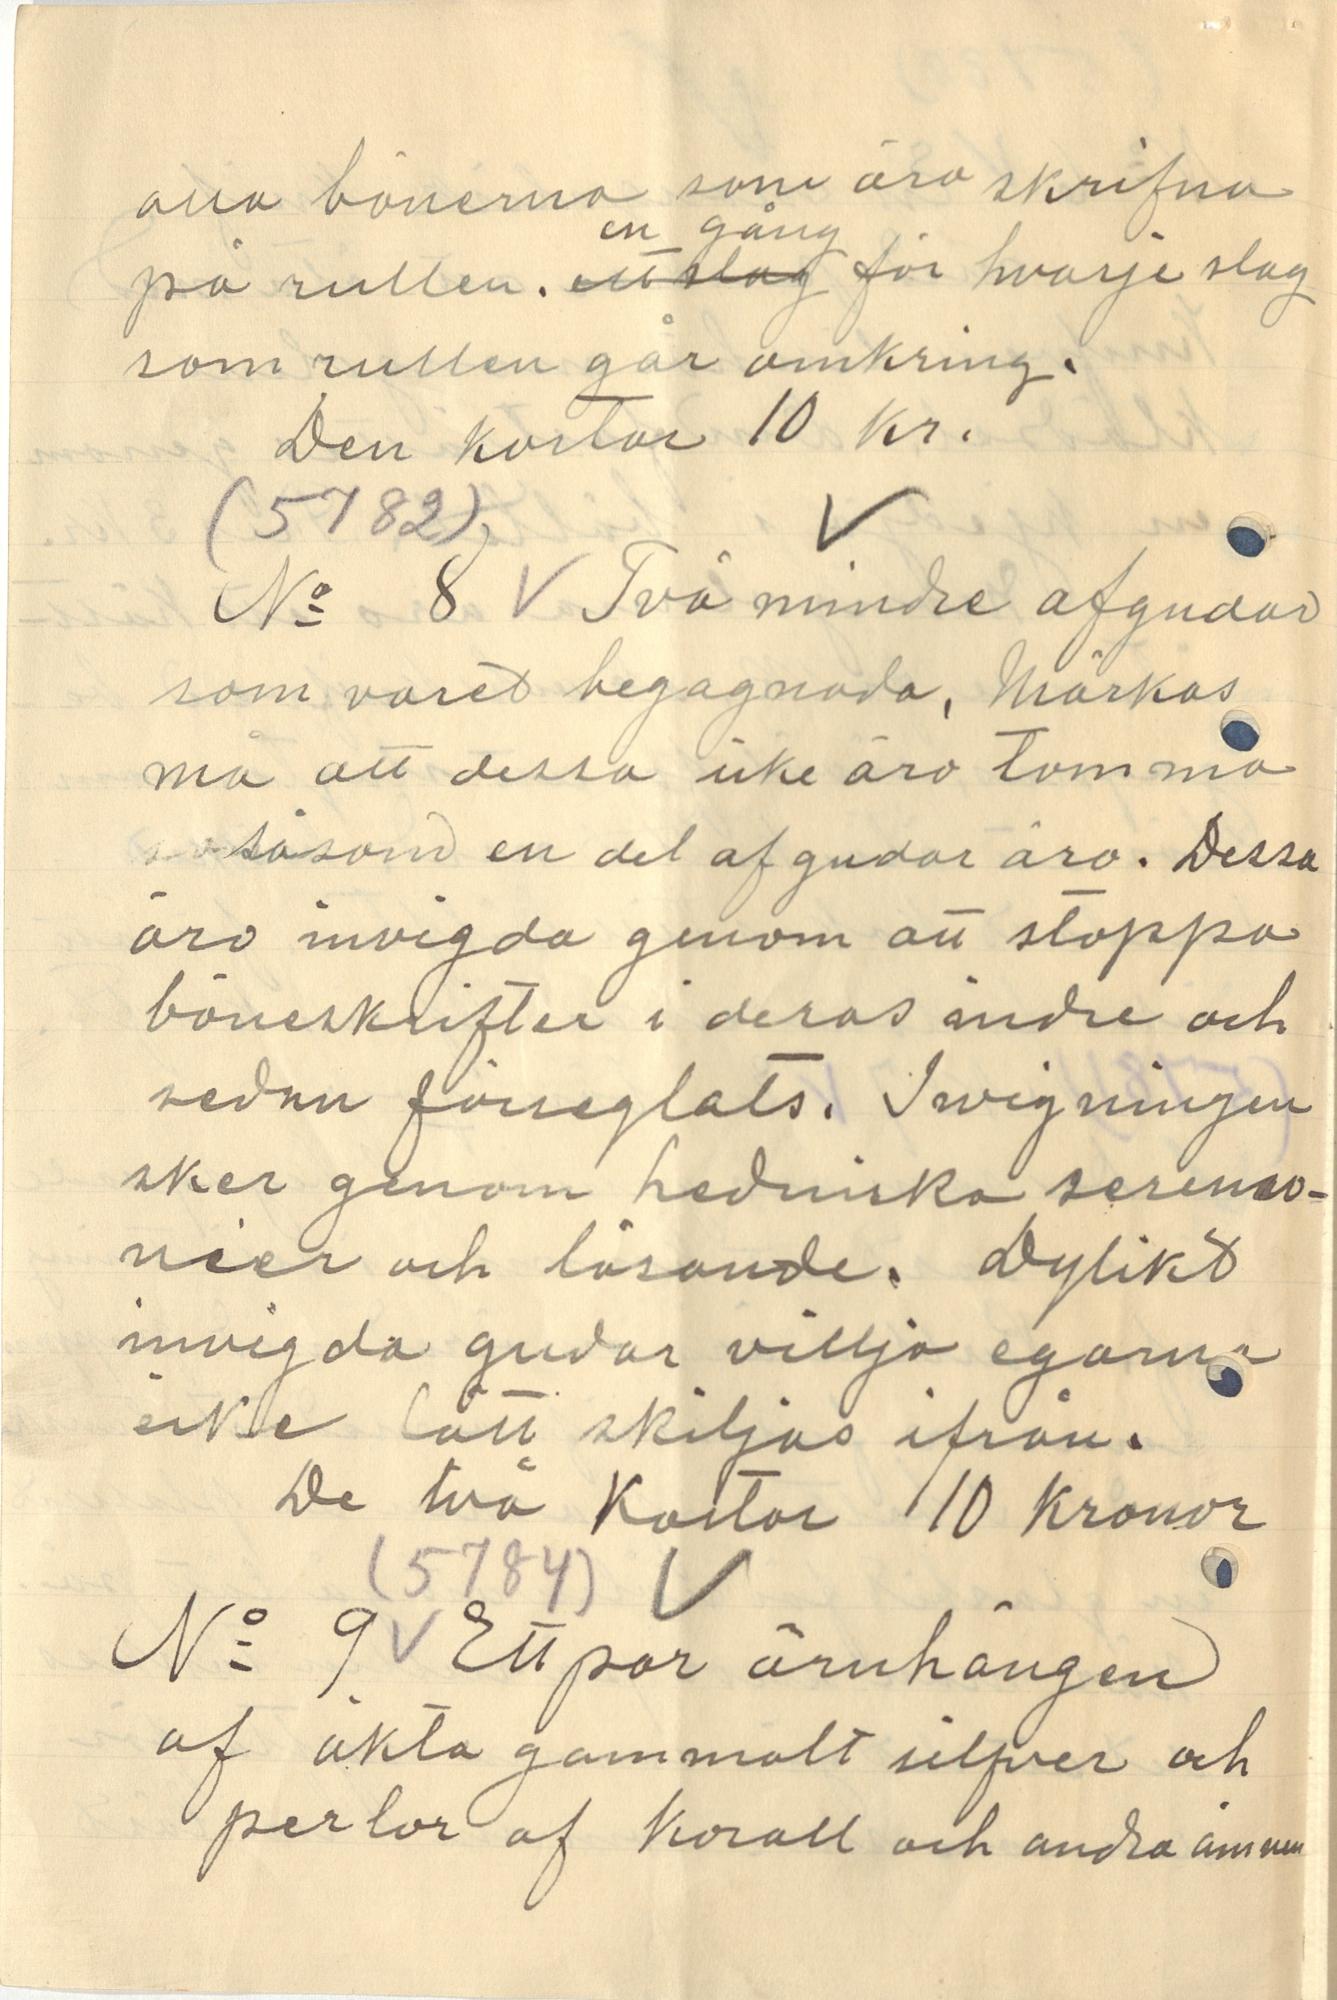 alla bönerna som äro skrifna
en gång
på rullen. ett slag för hvarje slag
som rullen går omkring.
Den kostar 10 kr.
(5782)
No 8 Två mindre afgudar
som varet begagnada, Märkas
må att dessa icke äro tomma
såsom en del afgudar äro. Dessa
äro invigda genom att stoppa
böneskrifter i deras indre och
sedan förseglats. Invigningen
sker genom hedniska seremo-
nier och läsande. Dylikt
invigda gudar villja egarna
icke lätt skiljas ifrån.
De två kostar 10 kronor
(5784)
No 9 Ett par örnhängen
af äkta gammalt silfver och
perlor af korall och andra ämnen